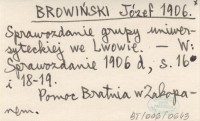 BROWIŃSKI Józef 1906.
Sprawozdanie grupy uniwer-
syteckiej we Lwowie. — W:
Sprawozdanie 1906 d, s. 16
i 18-19.
Pomoc Bratnia w Zakopa-
nem.